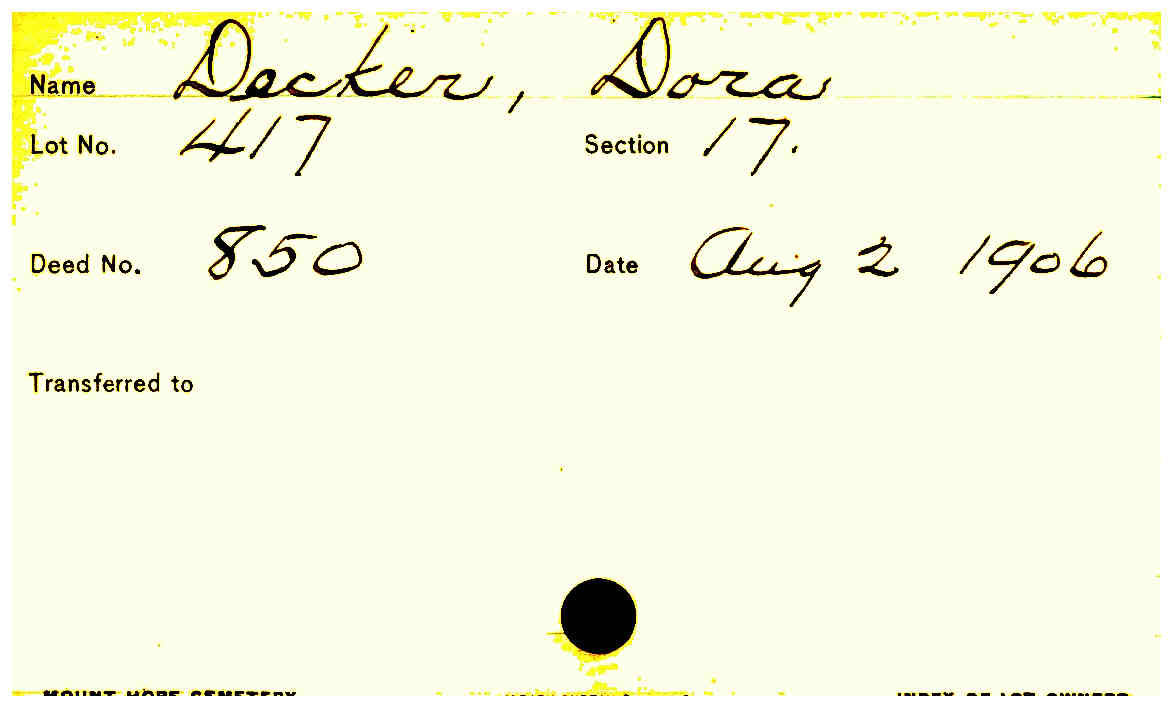 Name Decker, Dora
Lot No. 417 Section 17.
Deed No. 850 Date Aug 2 1906
Transferred to
MOUNT HOPE CEMETERY INDEX OF LOT OWNERS